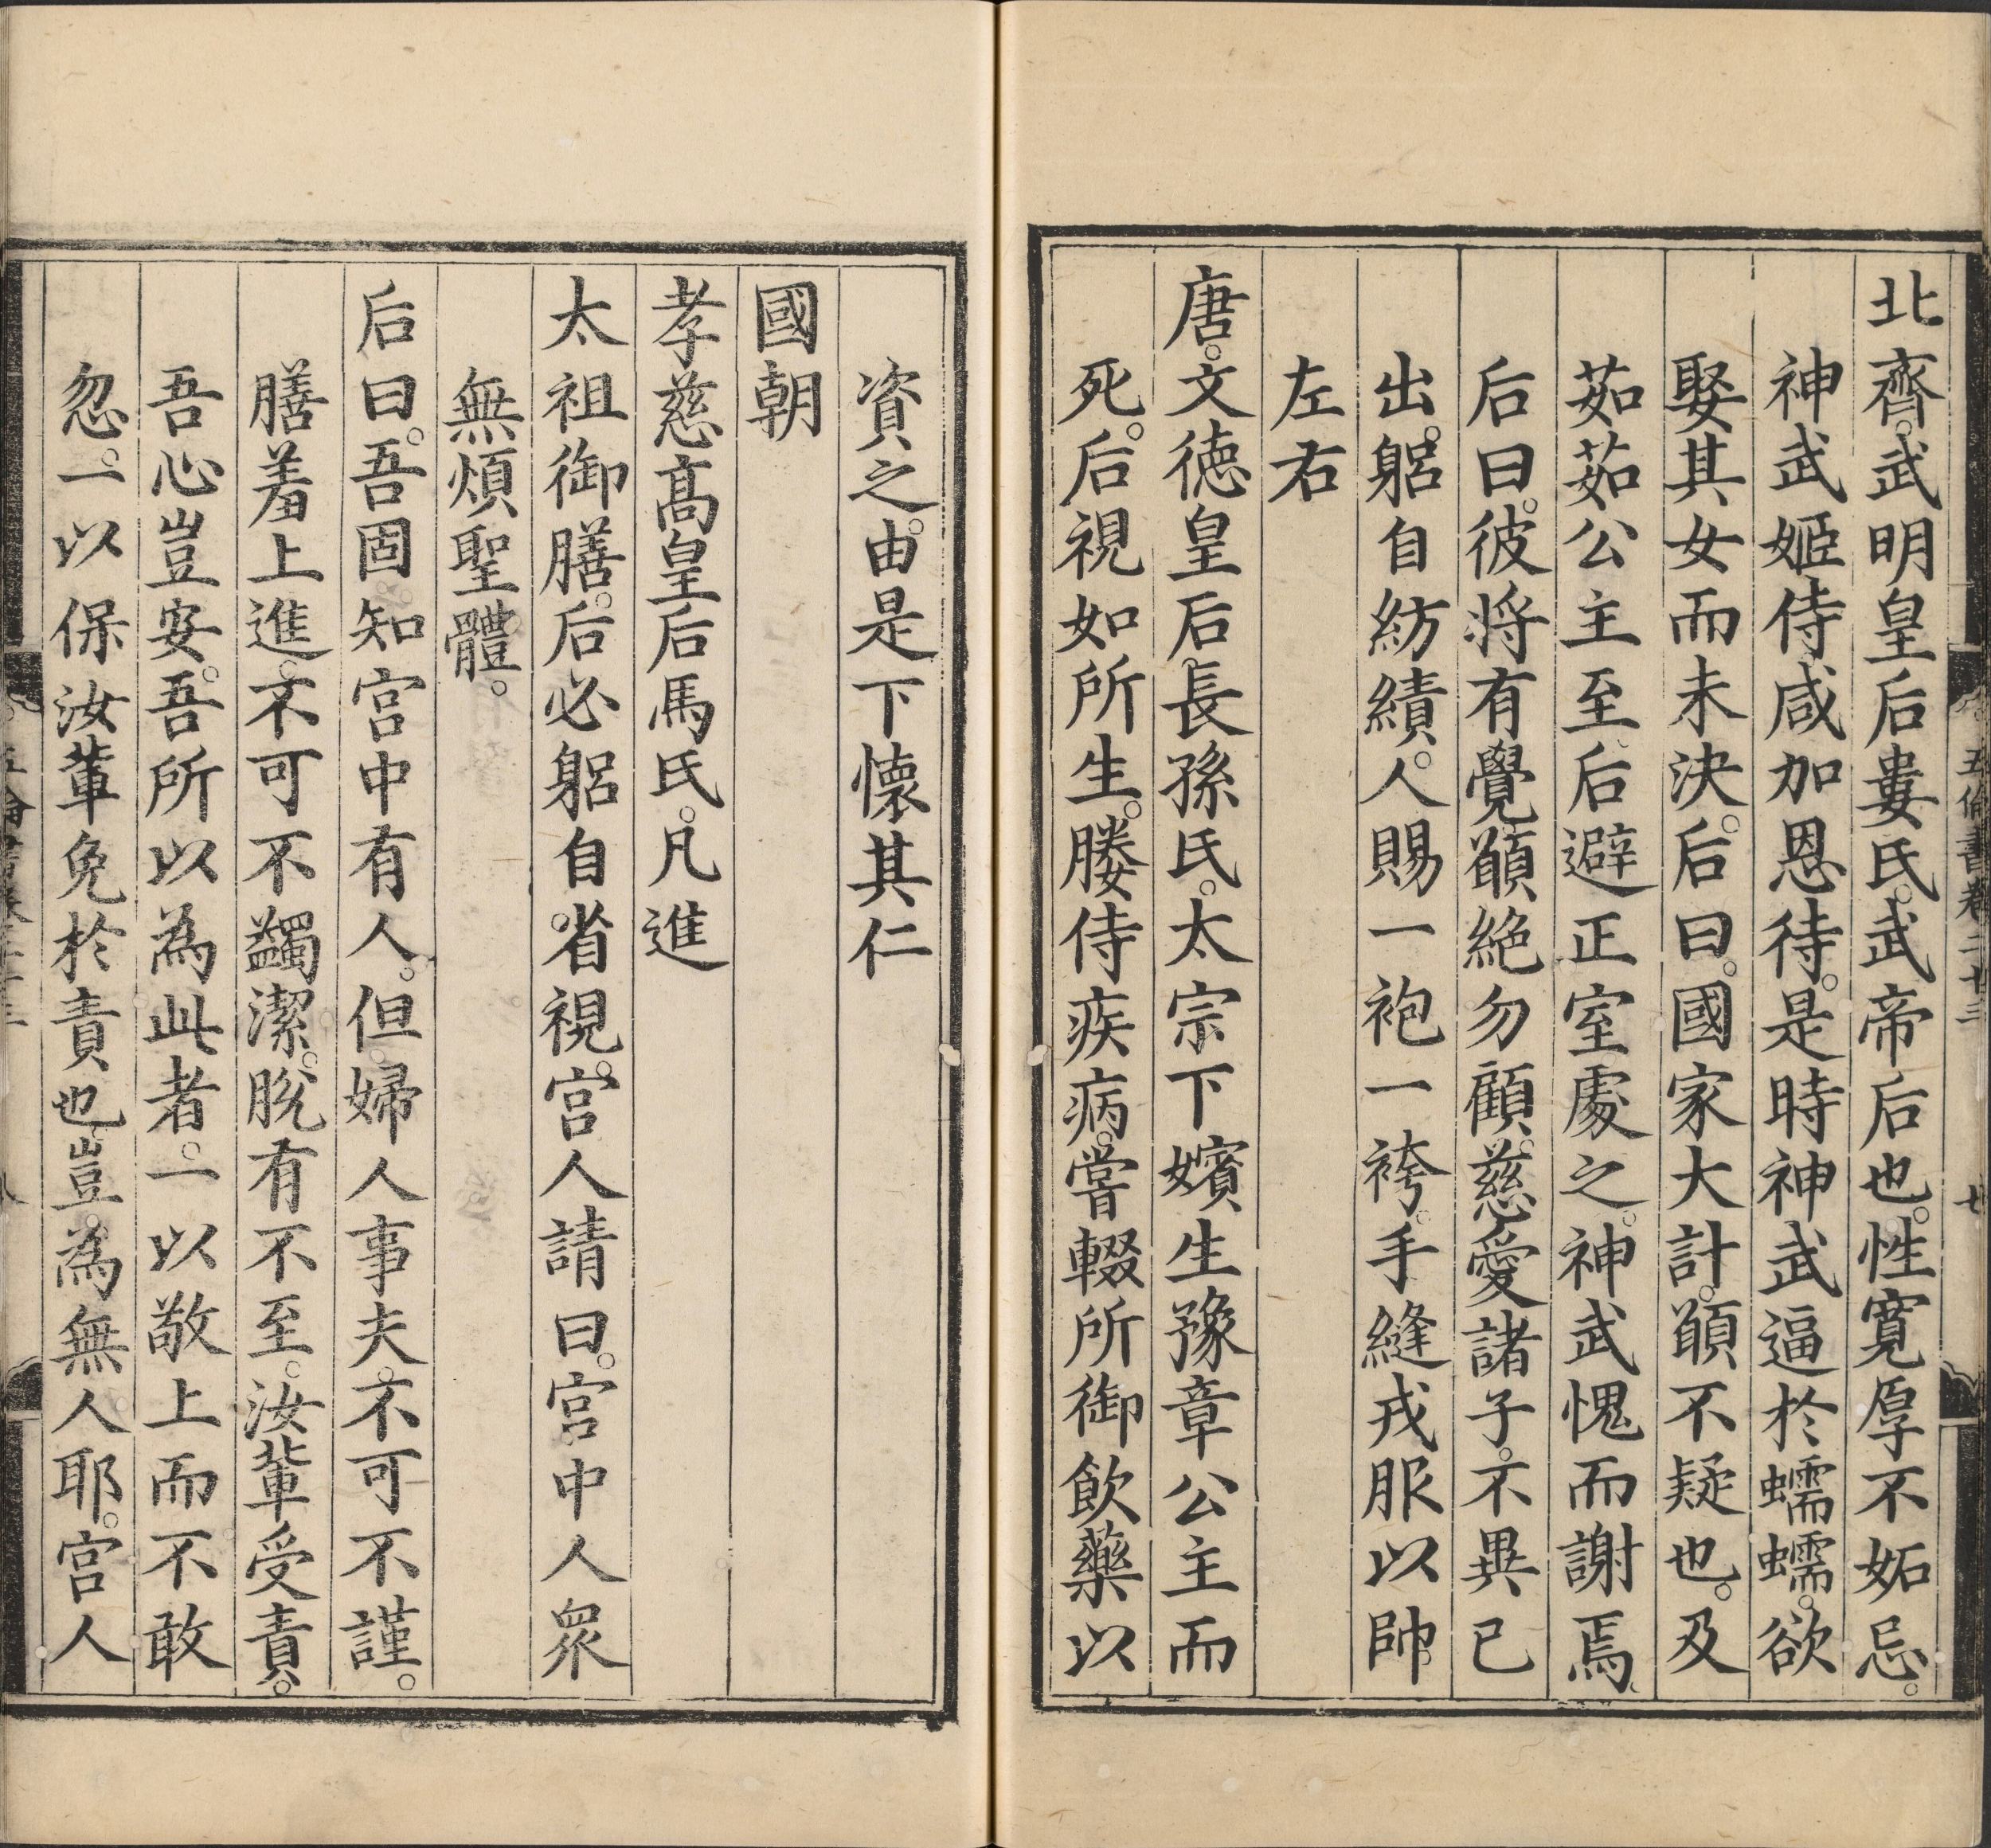 五倫書卷二十三
七
北齊。武明皇后婁氏。武帝后也。性寬厚不妬忌。
神武姬侍咸加恩待。是時神武逼於蠕蠕。欲
娶其女而未決。后曰。國家大計。願不疑也。及
茹茹公主至。后避正室處之。神武愧而謝焉。
后曰。彼将有覺。願絶勿顧。慈愛諸子。不異已
出。躬自紡績。人賜一袍一袴。手縫戎服以帥
左右
唐。文德皇后長孫氏。太宗下嬪生豫章公主而
死。后視如所生。媵侍疾病。嘗輟所御飲藥以
資之。由是下懐其仁
國朝
孝慈髙皇后馬氏。凡進
太祖御膳。后必躬自省視。宫人請曰。宫中人眾
無煩聖體。
后曰。吾固知宫中有人。但婦人事夫。不可不謹。
膳羞上進。不可不蠲潔。脱有不至。汝輩受責。
吾心豈安。吾所以為此者。一以敬上而不敢
忽。一以保汝輩免於責也。豈為無人耶。宫人